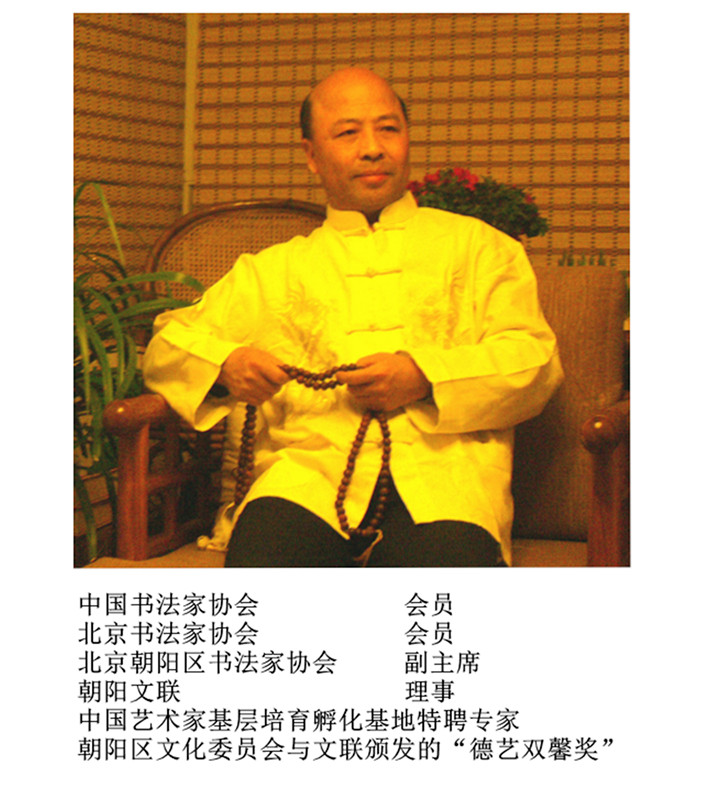 中国书法家协会 会员
北京书法家协会 会员
北京朝阳区书法家协会 副主席
朝阳文联 理事
中国艺术家基层培育孵化基地特聘专家
朝阳区文化委员会与文联颁发的“德艺双馨奖”